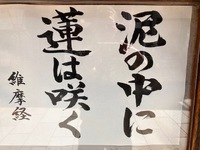 泥の中に
蓮は咲く
維摩経